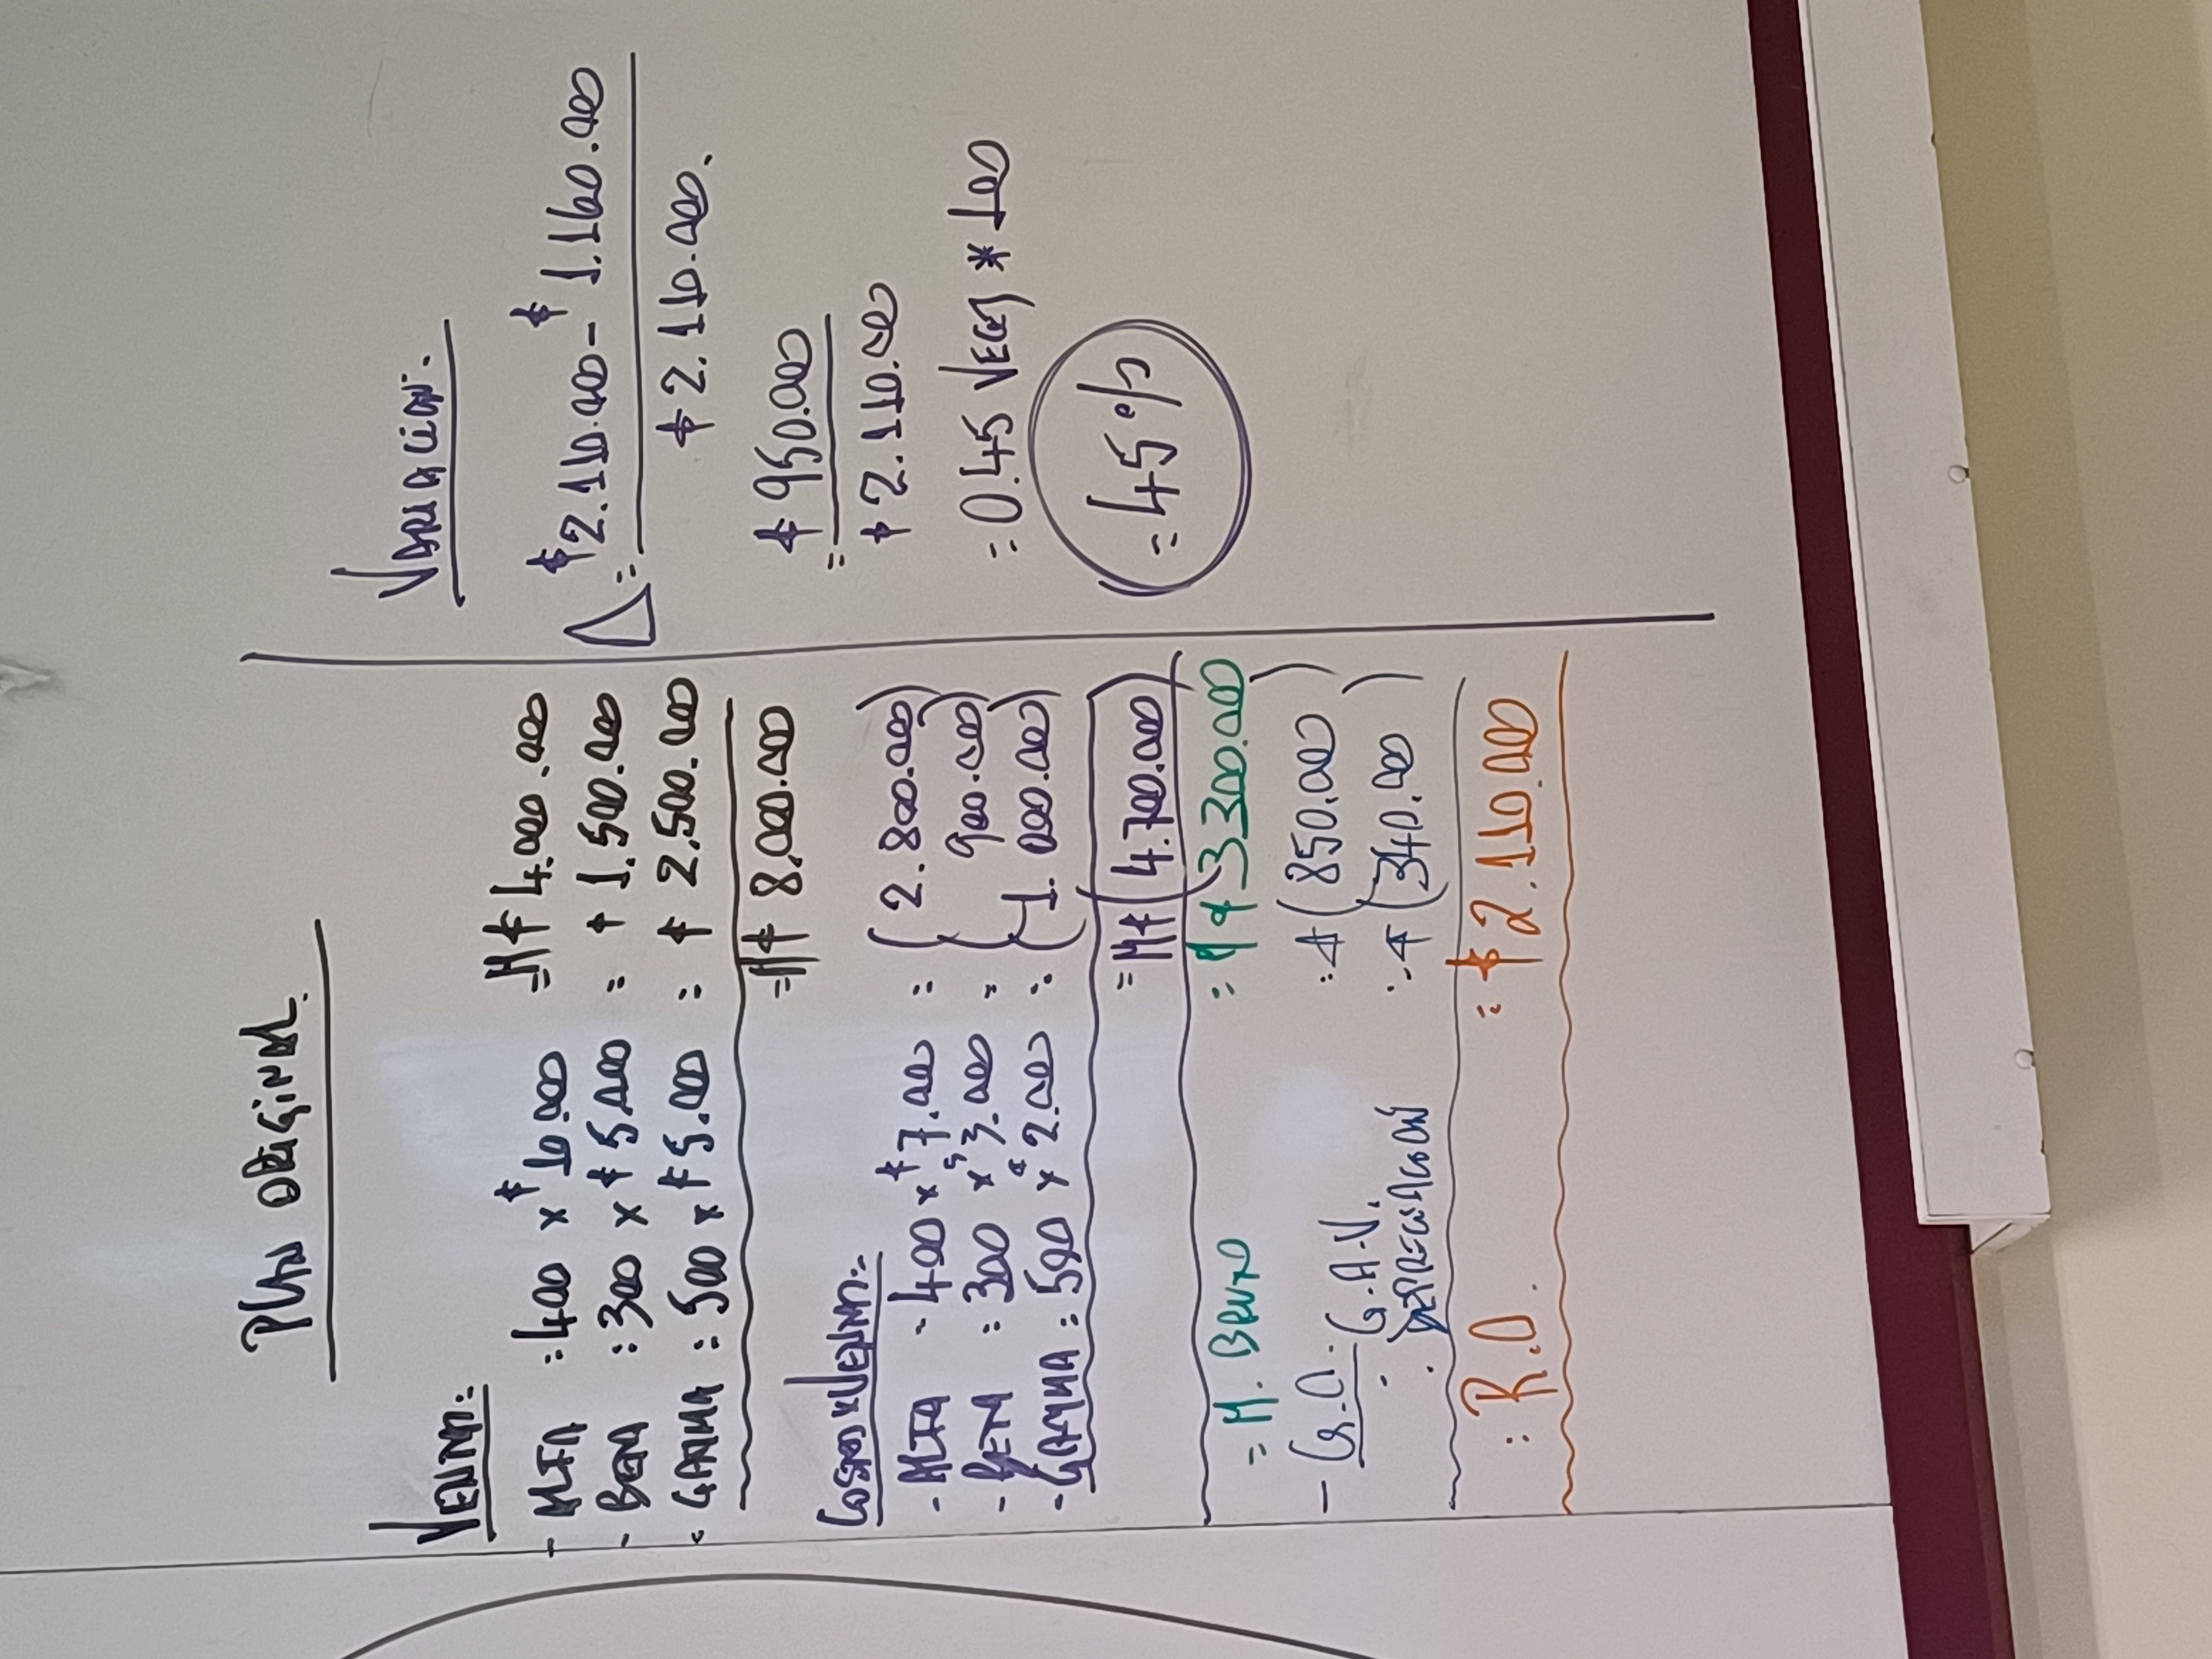 PLAN ORIGINAL.
VENTAS:
- ALFA : 400 x $10.000 = M$ 4.000.000
- BETA : 300 x $5.000 = $ 1.500.000
- GAMMA : 500 x $5.000 = $ 2.500.000
= M$ 8.000.000
COSTOS x VENTAS:
- ALFA - 400 x $7.000 = (2.800.000)
- BETA : 300 x $3.000 = (900.000)
- GAMMA : 500 x $2.000 : (1.000.000)
= M$ (4.700.000)
= M. BRUTO = M$ 3300.000
- G.O.
. G.A.V. : $ (850.000)
. DEPRECIACION : $ (340.000)
: R.O. : $ 2.110.000
VARIACION.
Δ = $2.110.000 - $1.160.000
$ 2.110.000.
= $ 950.000
$ 2.110.000
= 0.45 VECES * 100
= 45 %